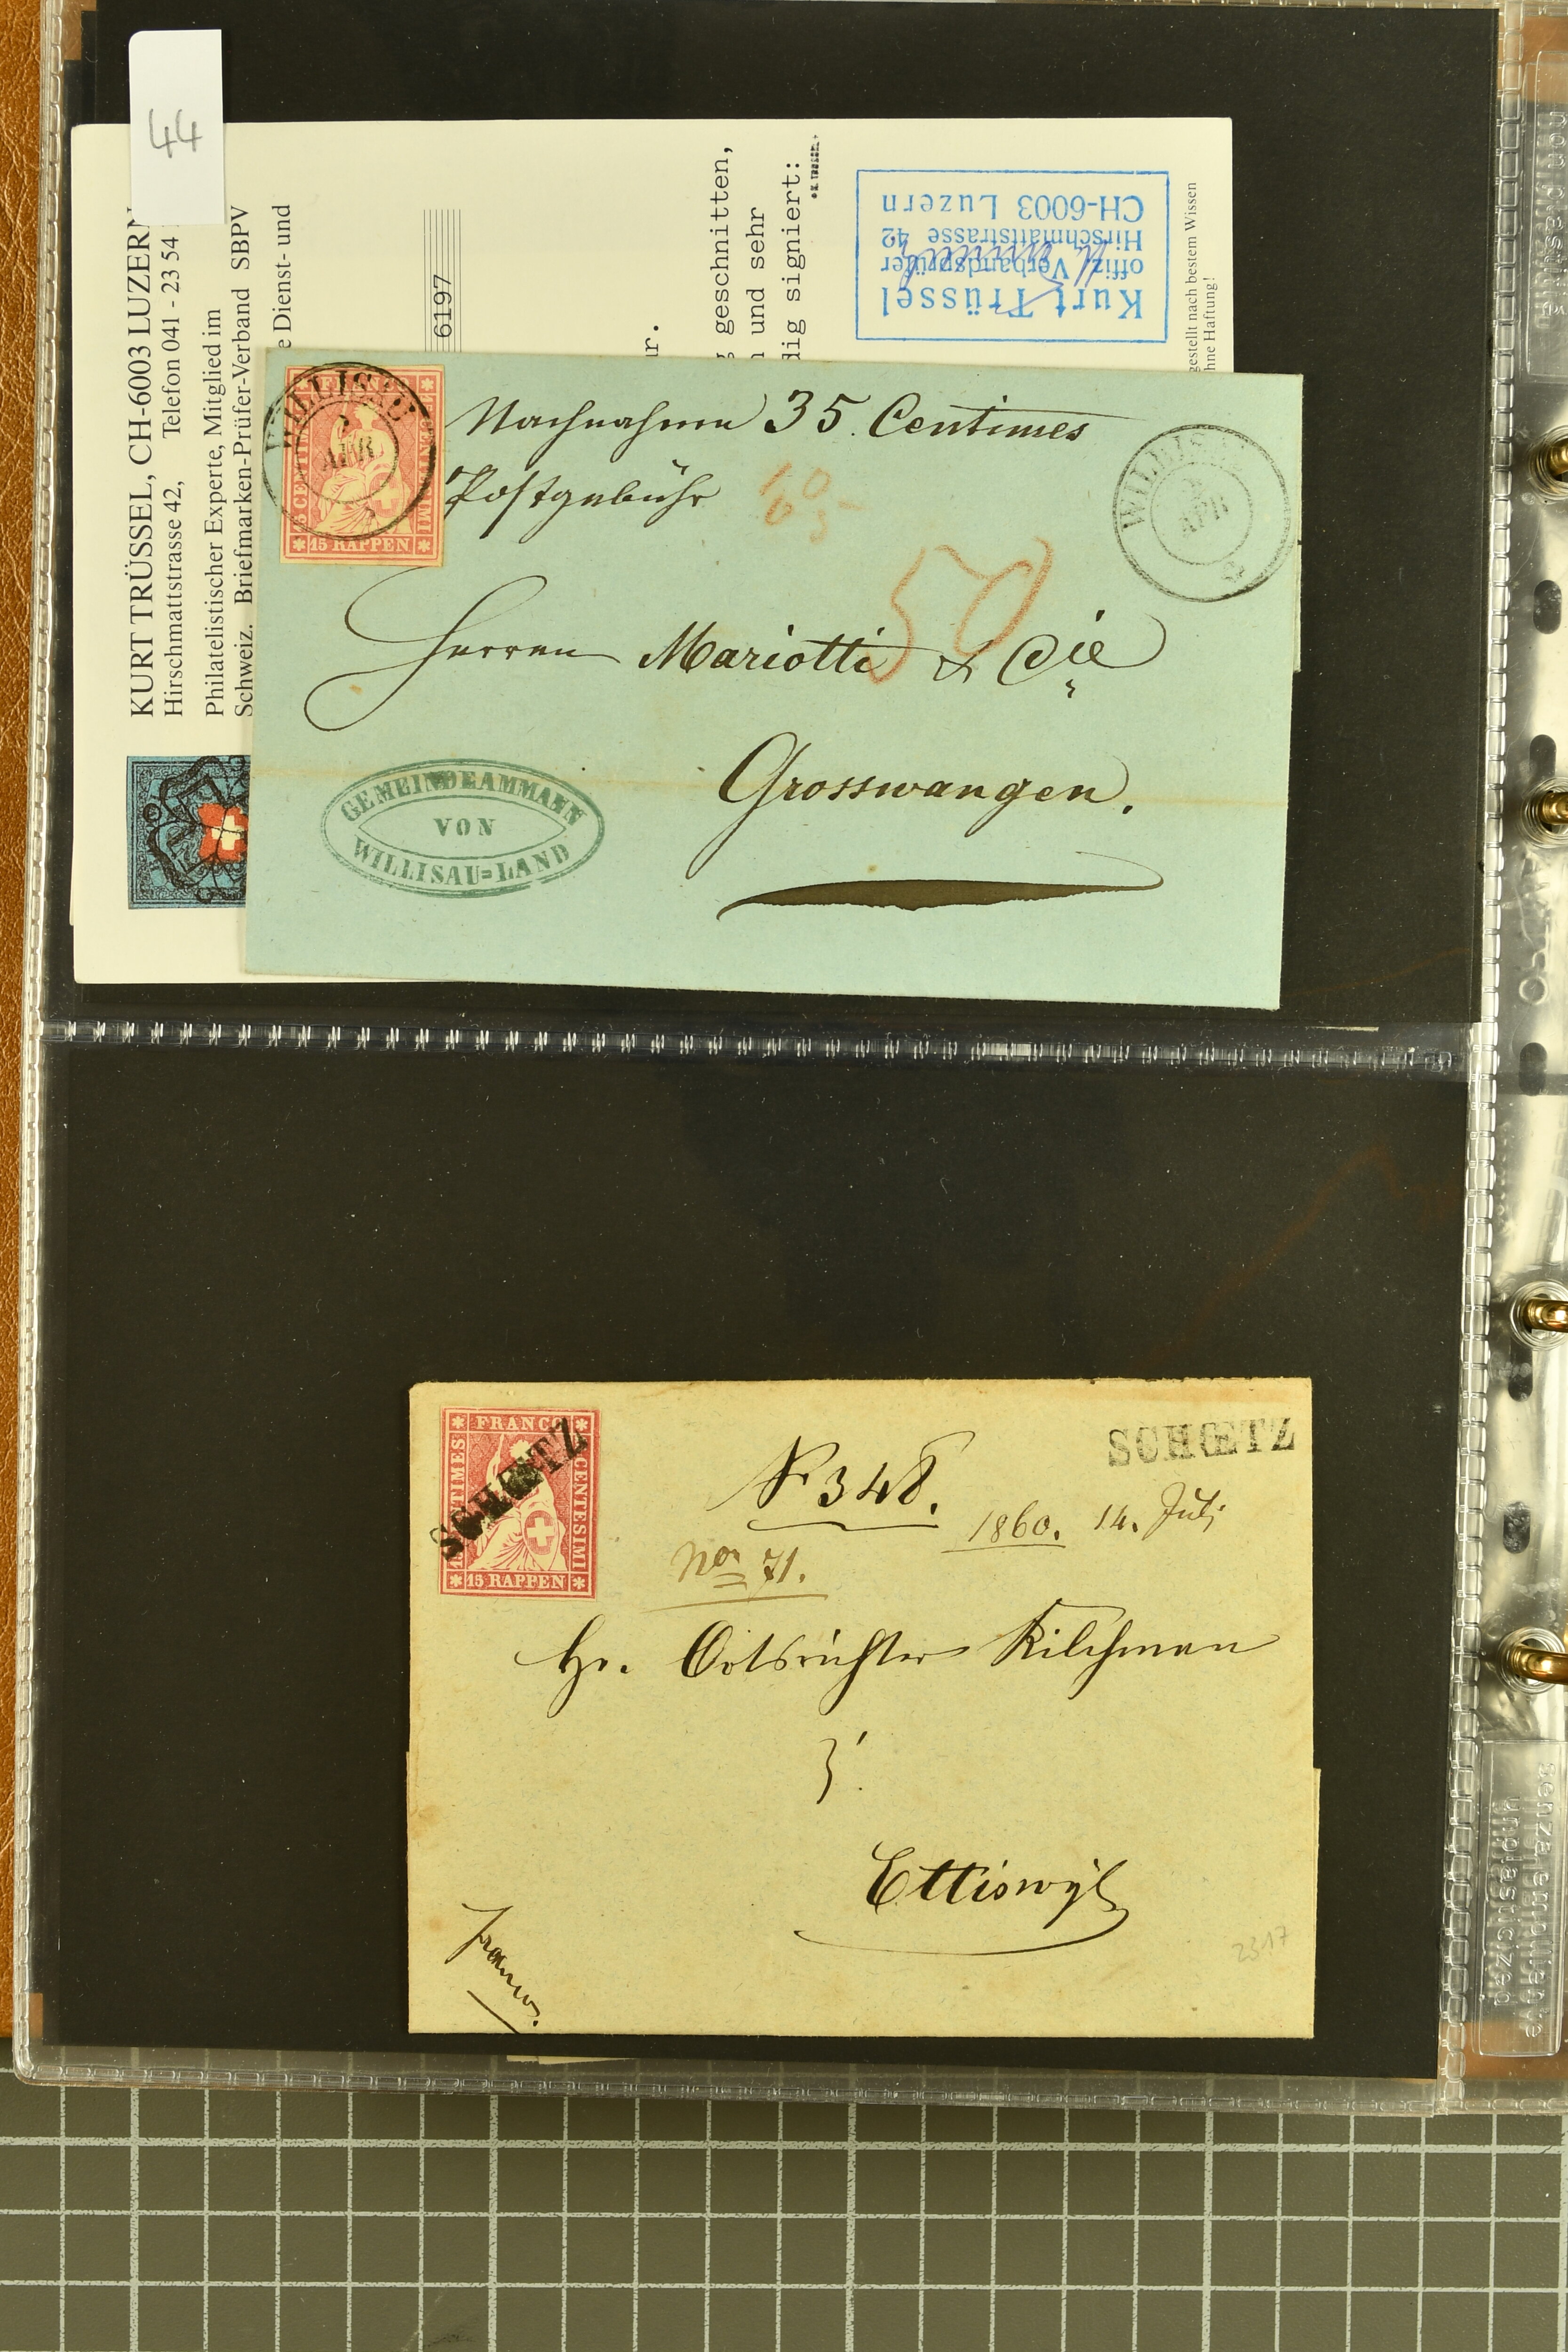 44
KURT TRÜSSEL, CH-6003 LUZERN
Hirschmattstrasse 42, Telefon 041 - 23 54
Philatelistischer Experte, Mitglied im
Schweiz. Briefmarken-Prüfer-Verband SBPV
e Dienst- und
6197
ur.
g geschnitten,
n und sehr
dig signiert:
Kurt Trüssel
offiz. Verbandsprüfer
Hirschmattstrasse 42
CH-6003 Luzern
gestellt nach bestem Wissen
hne Haftung!
FRANCO
15 RAPPEN
WILLISAU
APR
Nachnahme 35 Centimes
Postgebühr
50
WILLISAU
APR
Herren Mariotti & Cie
Grosswangen.
GEMEINDEAMMANN
VON
WILLISAU=LAND
FRANCO
CENTIMES
CENTESIMI
15 RAPPEN
SCHŒTZ
SCHŒTZ
N 348.
1860. 14. Juli
No 71.
Hr. Ortsrichter Kilchman
Ettiswyl
Franco.
2317